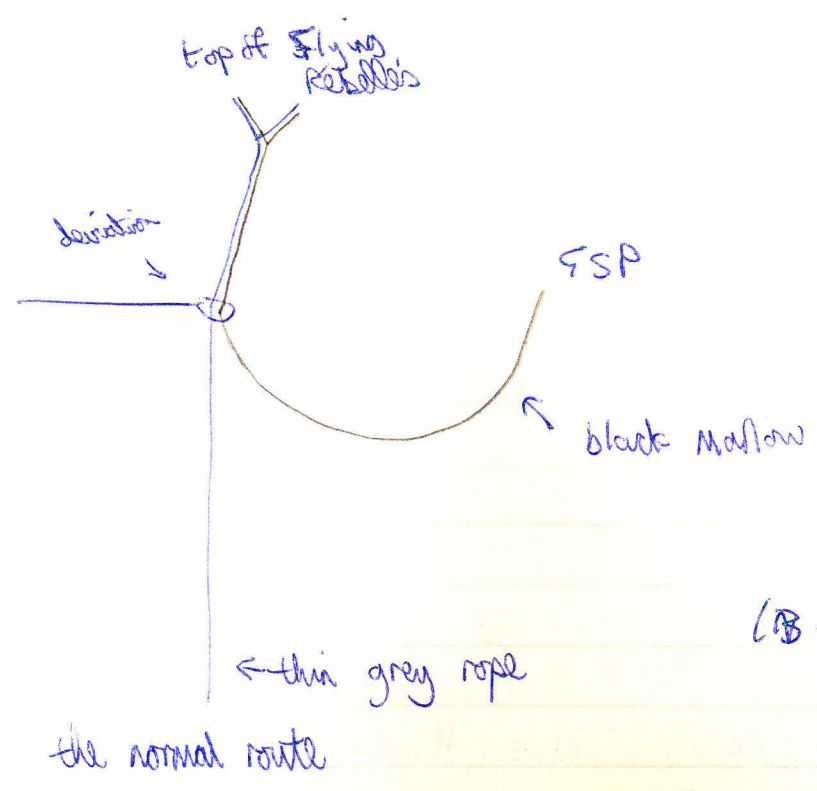 top of Flying
Rebelles
deviation
ESP
black Marlow
(B
← thin grey rope
the normal route